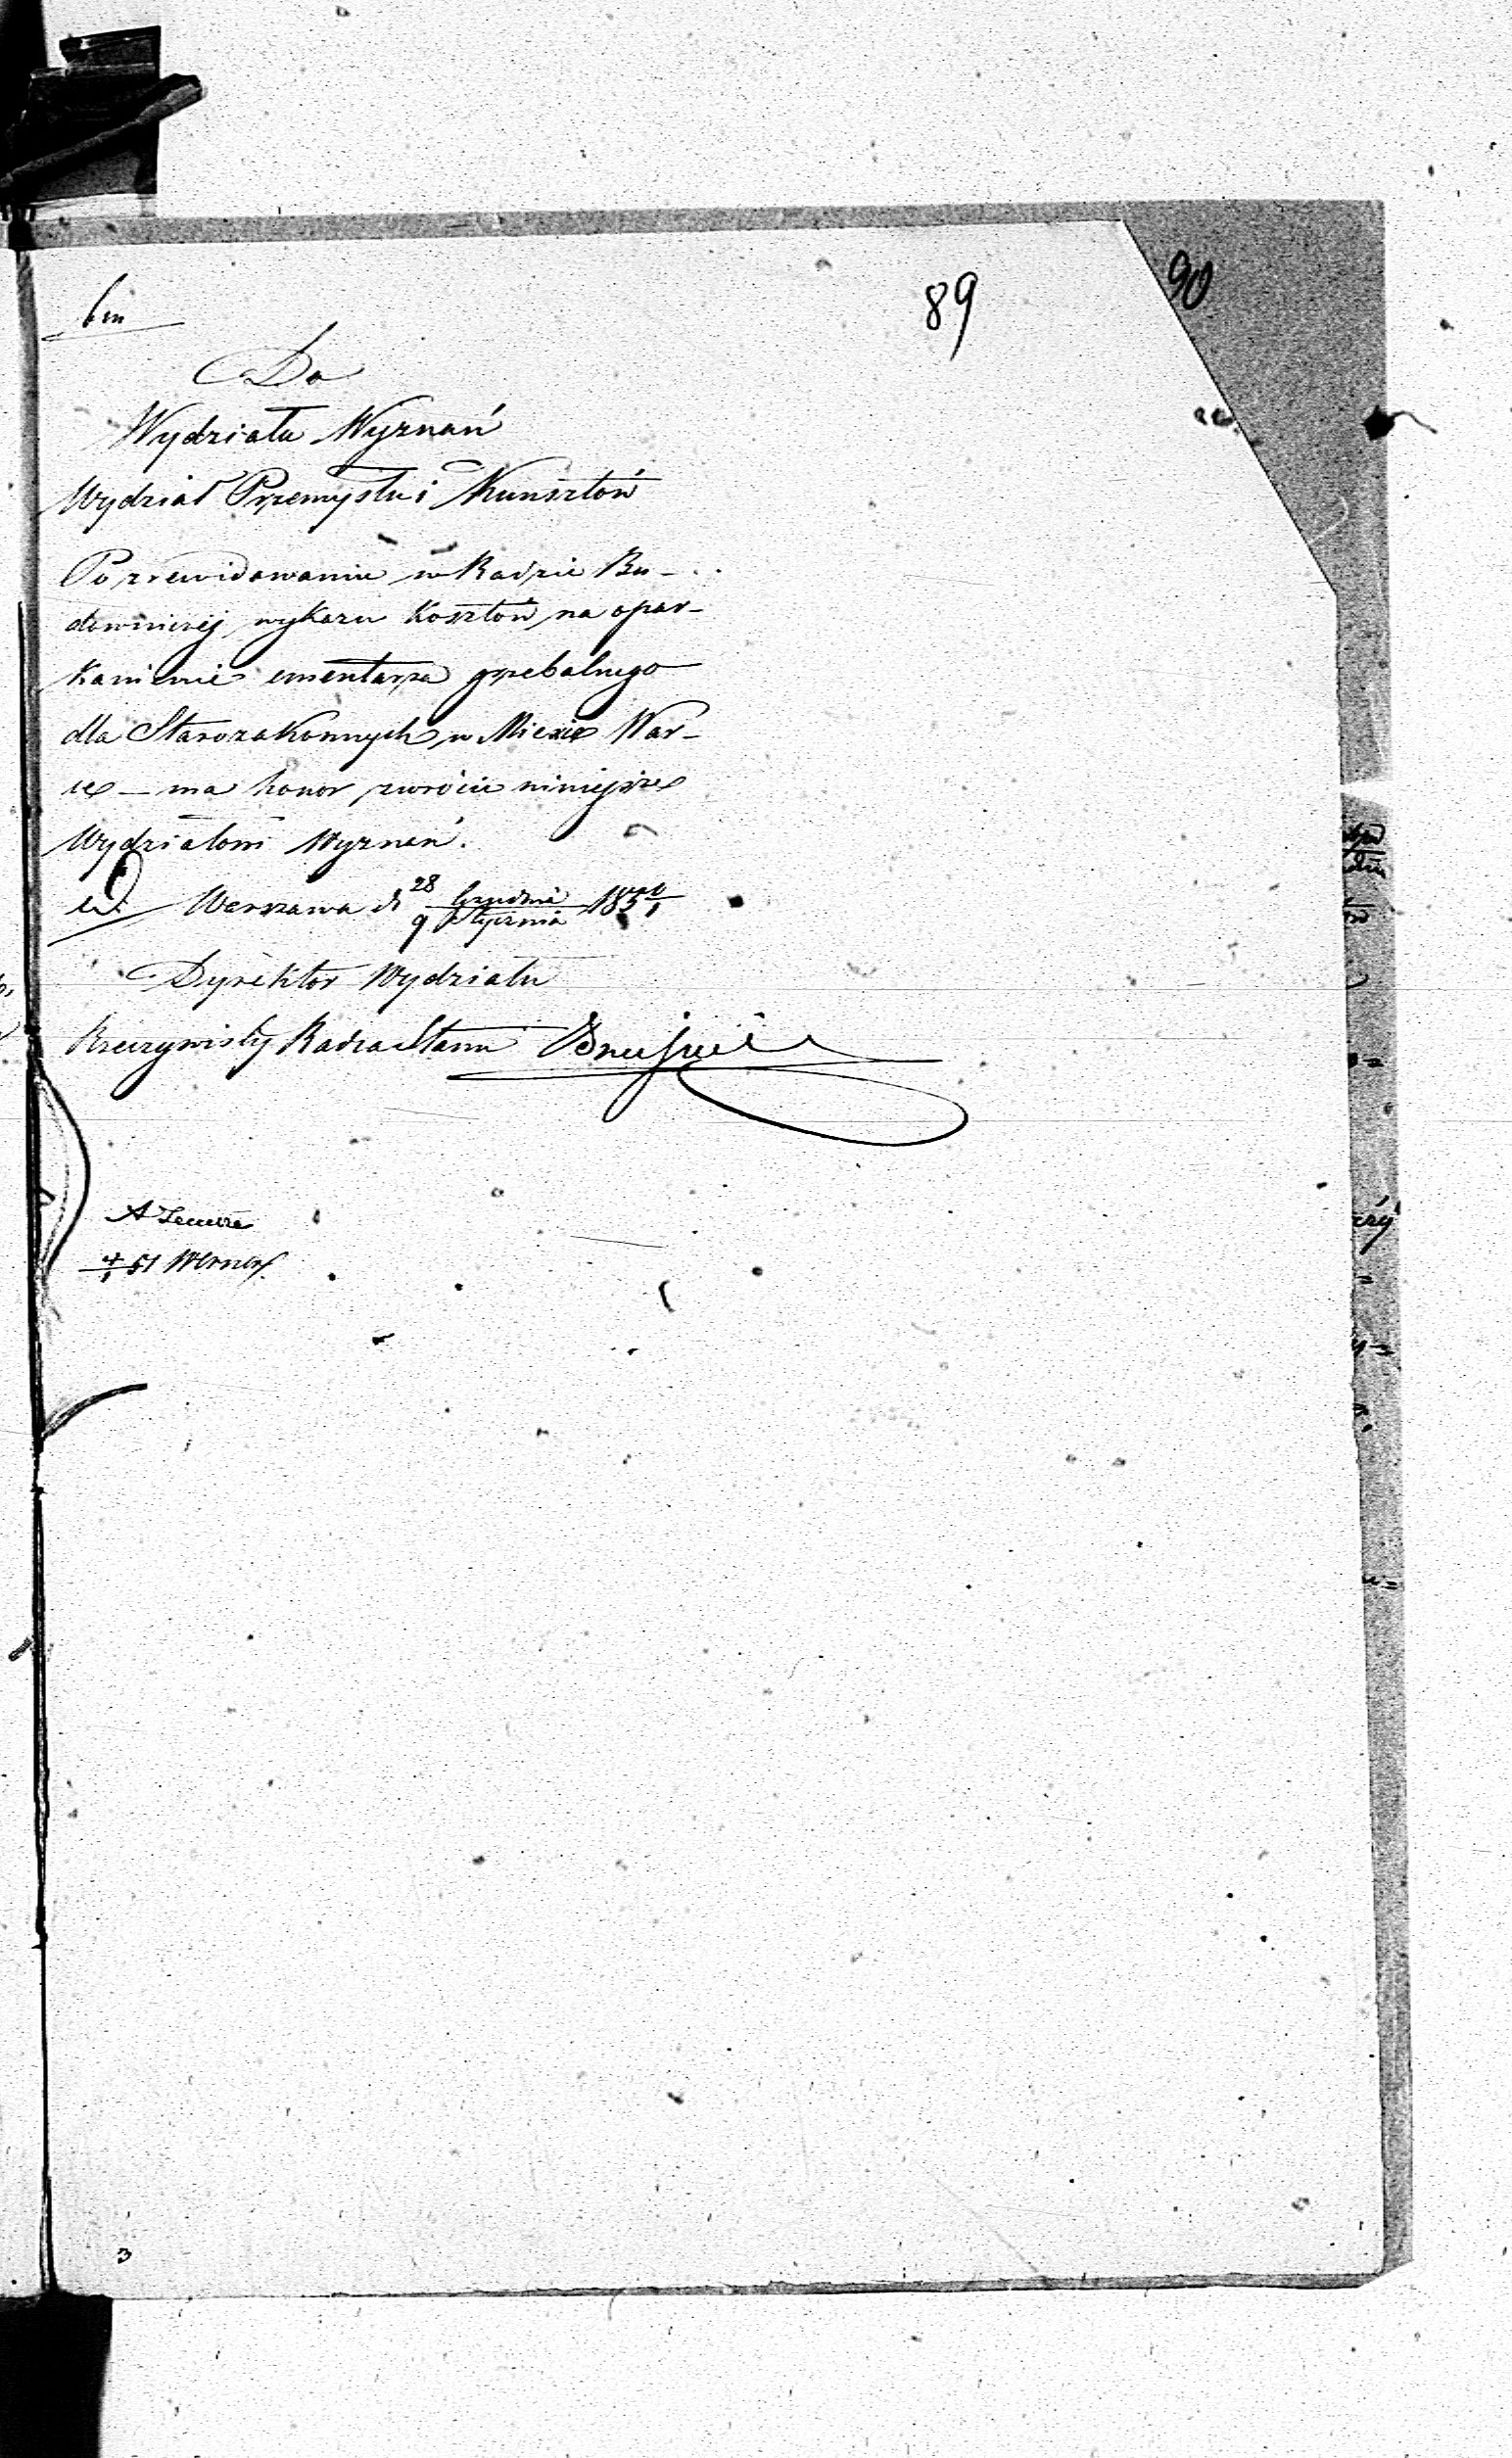 89
90
Do
Wydziału Wyznań
Wydział Przemysłu i Kunsztów
Po zrewidowaniu w Radzie Bu-
downiczej wykazu kosztów na opar-
kanienie cmentarza grzebalnego
dla Starozakonnych w Mieście War-
cie – ma honor zwrócić niniejsze
Wydziałowi Wyznań.
Warszawa d 28 Grudnia
9 Stycznia 1850/1
Dyrektor Wydziału
Rzeczywisty Radca Stanu
4/1 51 Werner
3